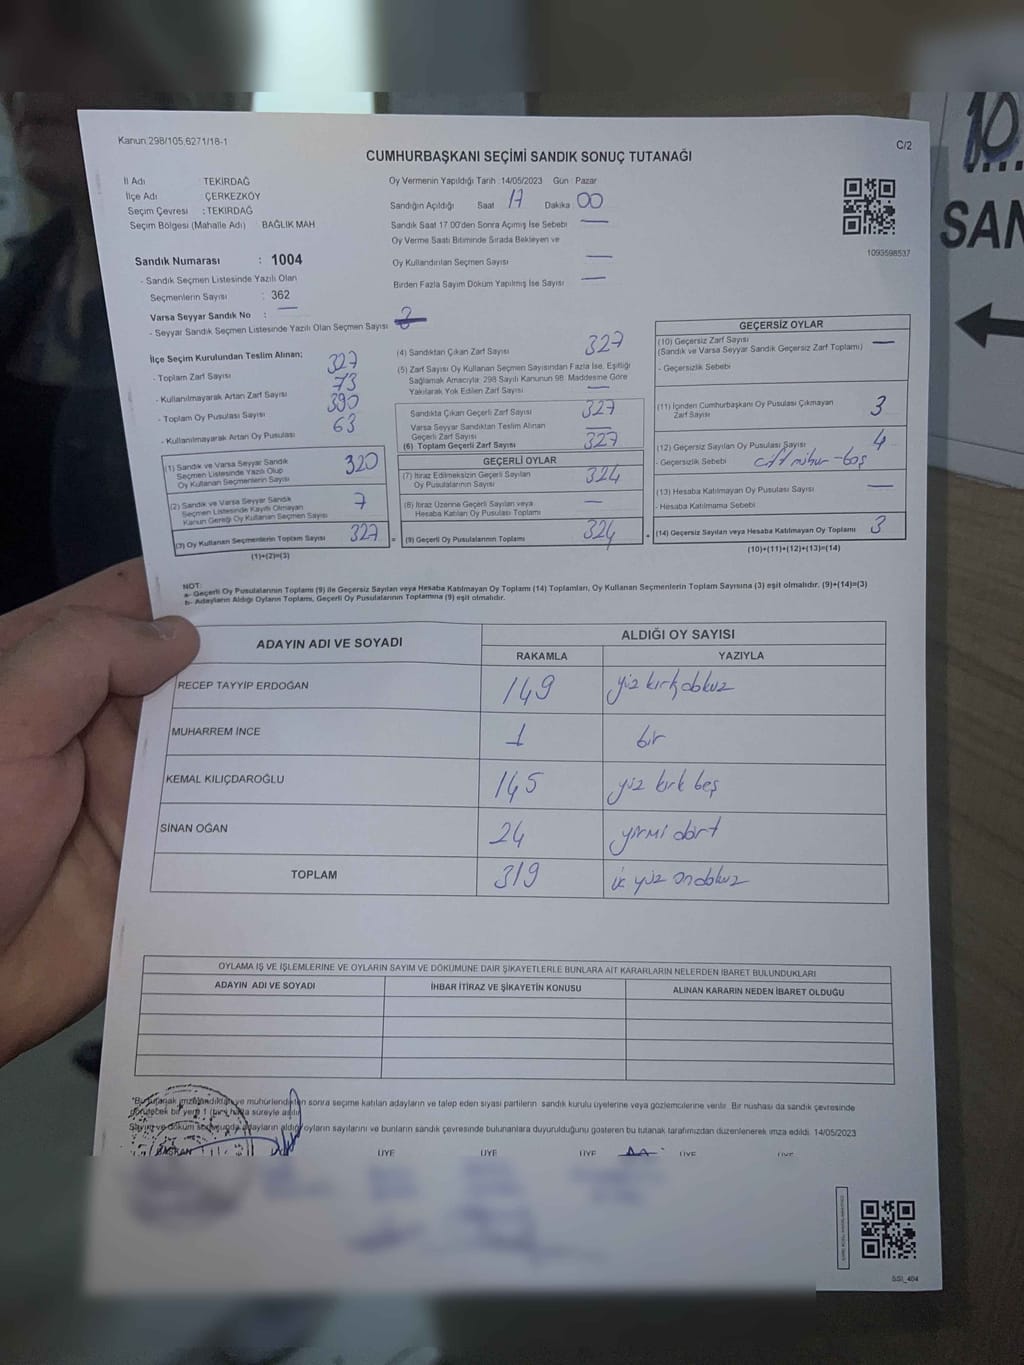 Kanun:298/105,6271/18-1
C/2
CUMHURBAŞKANI SEÇİMİ SANDIK SONUÇ TUTANAĞI
İl Adı : TEKİRDAĞ
İlçe Adı : ÇERKEZKÖY
Seçim Çevresi : TEKİRDAĞ
Seçim Bölgesi (Mahalle Adı) BAĞLIK MAH
Sandık Numarası : 1004
- Sandık Seçmen Listesinde Yazılı Olan
Seçmenlerin Sayısı : 362
Varsa Seyyar Sandık No : —
- Seyyar Sandık Seçmen Listesinde Yazılı Olan Seçmen Sayısı
Oy Vermenin Yapıldığı Tarih : 14/05/2023 Gün : Pazar
Sandığın Açıldığı Saat 17 Dakika 00
Sandık Saat 17:00'den Sonra Açılmış İse Sebebi —
Oy Verme Saati Bitiminde Sırada Bekleyen ve
Oy Kullandırılan Seçmen Sayısı —
Birden Fazla Sayım Döküm Yapılmış İse Sayısı —
1093598537
10
SAN
İlçe Seçim Kurulundan Teslim Alınan;
- Toplam Zarf Sayısı 327
- Kullanılmayarak Artan Zarf Sayısı 73
- Toplam Oy Pusulası Sayısı 390
- Kullanılmayarak Artan Oy Pusulası 63
(1) Sandık ve Varsa Seyyar Sandık
Seçmen Listesinde Yazılı Olup
Oy Kullanan Seçmenlerin Sayısı 320
(2) Sandık ve Varsa Seyyar Sandık
Seçmen Listesinde Kayıtlı Olmayan
Kanun Gereği Oy Kullanan Seçmen Sayısı 7
(3) Oy Kullanan Seçmenlerin Toplam Sayısı 327 =
(1)+(2)=(3)
(4) Sandıktan Çıkan Zarf Sayısı 327
(5) Zarf Sayısı Oy Kullanan Seçmen Sayısından Fazla İse, Eşitliği
Sağlamak Amacıyla; 298 Sayılı Kanunun 98. Maddesine Göre
Yakılarak Yok Edilen Zarf Sayısı —
Sandıkta Çıkan Geçerli Zarf Sayısı 327
Varsa Seyyar Sandıktan Teslim Alınan
Geçerli Zarf Sayısı —
(6) Toplam Geçerli Zarf Sayısı 327
GEÇERLİ OYLAR
(7) İtiraz Edilmeksizin Geçerli Sayılan
Oy Pusulalarının Sayısı 324
(8) İtiraz Üzerine Geçerli Sayılan veya
Hesaba Katılan Oy Pusulası Toplamı —
(9) Geçerli Oy Pusulalarının Toplamı 324 +
GEÇERSİZ OYLAR
(10) Geçersiz Zarf Sayısı —
(Sandık ve Varsa Seyyar Sandık Geçersiz Zarf Toplamı)
- Geçersizlik Sebebi
(11) İçinden Cumhurbaşkanı Oy Pusulası Çıkmayan
Zarf Sayısı 3
(12) Geçersiz Sayılan Oy Pusulası Sayısı 4
- Geçersizlik Sebebi çift mühür - boş
(13) Hesaba Katılmayan Oy Pusulası Sayısı —
- Hesaba Katılmama Sebebi
(14) Geçersiz Sayılan veya Hesaba Katılmayan Oy Toplamı 3
(10)+(11)+(12)+(13)=(14)
NOT:
a- Geçerli Oy Pusulalarının Toplamı (9) ile Geçersiz Sayılan veya Hesaba Katılmayan Oy Toplamı (14) Toplamları, Oy Kullanan Seçmenlerin Toplam Sayısına (3) eşit olmalıdır. (9)+(14)=(3)
b- Adayların Aldığı Oyların Toplamı, Geçerli Oy Pusulalarının Toplamına (9) eşit olmalıdır.
ADAYIN ADI VE SOYADI
ALDIĞI OY SAYISI
RAKAMLA YAZIYLA
RECEP TAYYİP ERDOĞAN 149 yüz kırk dokuz
MUHARREM İNCE 1 bir
KEMAL KILIÇDAROĞLU 145 yüz kırk beş
SİNAN OĞAN 24 yirmi dört
TOPLAM 319 üç yüz on dokuz
OYLAMA İŞ VE İŞLEMLERİNE VE OYLARIN SAYIM VE DÖKÜMÜNE DAİR ŞİKAYETLERLE BUNLARA AİT KARARLARIN NELERDEN İBARET BULUNDUKLARI
ADAYIN ADI VE SOYADI İHBAR İTİRAZ VE ŞİKAYETİN KONUSU ALINAN KARARIN NEDEN İBARET OLDUĞU
*Bu tutanak imzalandıktan ve mühürlendikten sonra seçime katılan adayların ve talep eden siyasi partilerin sandık kurulu üyelerine veya gözlemcilerine verilir. Bir nüshası da sandık çevresinde
görülecek bir yere 1 (bir) hafta süreyle asılır.
Sayım ve döküm sonucunda adayların aldığı oyların sayılarını ve bunların sandık çevresinde bulunanlara duyurulduğunu gösteren bu tutanak tarafımızdan düzenlenerek imza edildi. 14/05/2023
BAŞKAN ÜYE ÜYE ÜYE ÜYE ÜYE
SSI_404